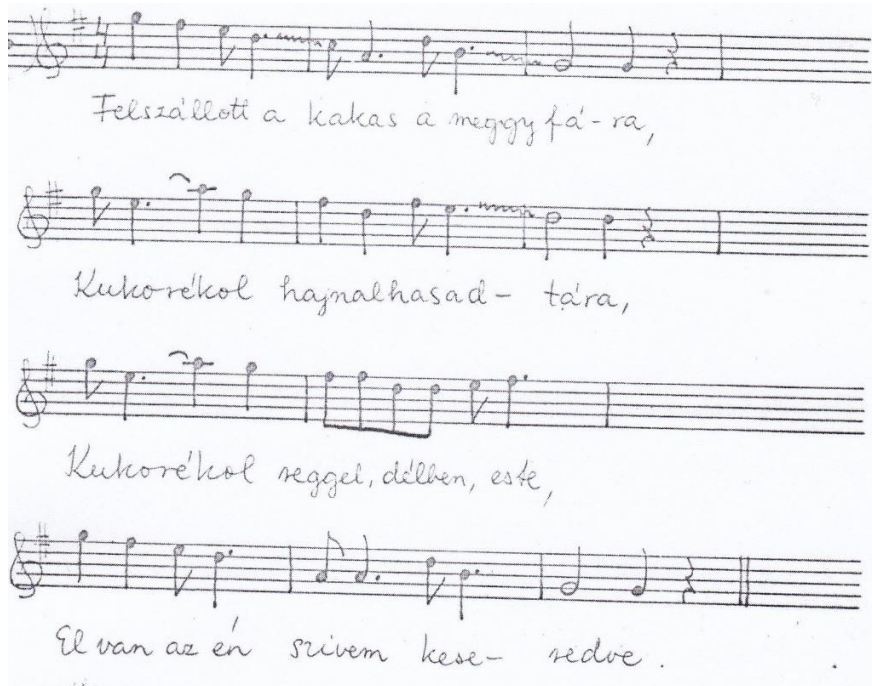 Felszállott a kakas a meggyfá-ra,
Kukorékol hajnalhasad- tára,
Kukorékol reggel, délben, este,
El van az én szivem kese- redve.